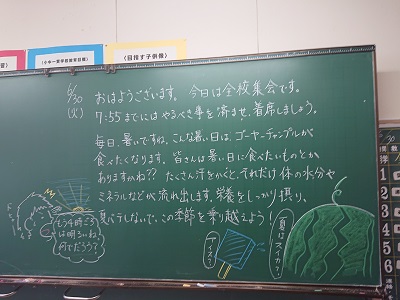 (小中一貫学校教育目標)
(目指す子供像)
6/30
(火)
おはようございます。今日は全校集会です。
7:55までにはやるべき事を済ませ、着席しましょう。
毎日、暑いですね。こんな暑い日は、ゴーヤーチャンプルが
食べたくなります。皆さんは暑い日に食べたいものとか
ありますかね??たくさん汗をかくと、それだけ体の水分や
ミネラルなどが流れ出します。栄養をしっかり摂り、
夏バテしないで、この季節を乗り越えよう!
もう4時ごろ
は明るいね
何でだろう?
アイス!
夏はスイカっ!
5
6